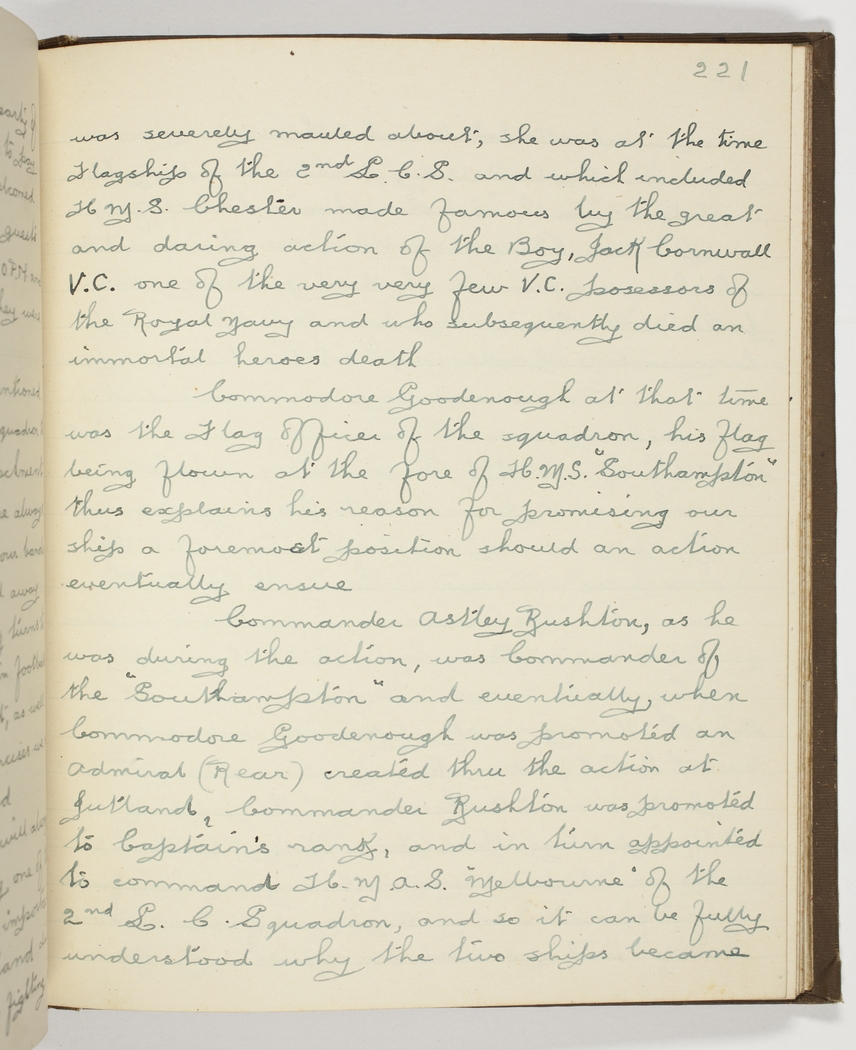 221
was severely mauled about, she was at the time
Flagship of the 2nd L.C.S. and which included
H.M.S. Chester made famous by the great
and daring action of the Boy, Jack Cornwall
V.C. one of the very very few V.C. posessors of
the Royal Navy and who subsequently died an
immortal heroes death
Commodore Goodenough at that time
was the Flag Officer of the squadron, his flag
being flown at the fore of H.M.S. "Southampton"
thus explains his reason for promising our
ship a foremost position should an action
eventually ensue
Commander Astley Rushton, as he
was during the action, was Commander of
the "Southampton" and eventually, when
Commodore Goodenough was promoted an
Admiral (Rear) created thru the action at
Jutland, Commander Rushton was promoted
to Captain's rank, and in turn appointed
to command H.M.A.S. "Melbourne" of the
2nd L. C. Squadron, and so it can be fully
understood why the two ships became